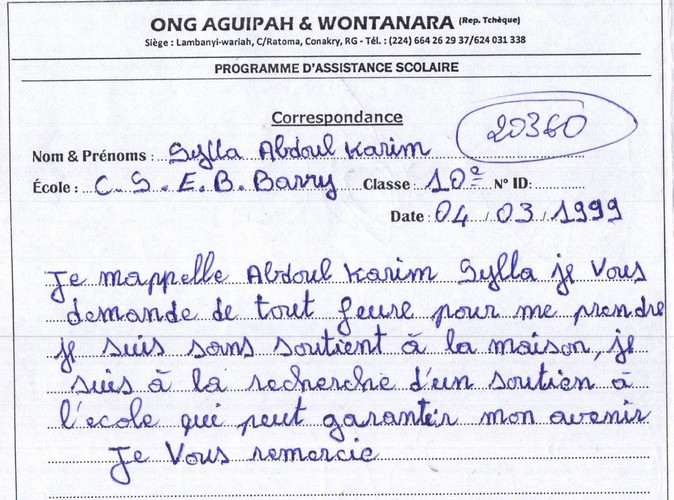 ONG AGUIPAH & WONTANARA (Rep. Tchèque)
Siège : Lambanyi-wariah, C/Ratoma, Conakry, RG - Tél. : (224) 664 26 29 37/624 031 338
PROGRAMME D'ASSISTANCE SCOLAIRE
Correspondance
20360
Nom & Prénoms : Sylla Abdoul Karim
École : C.S.E.B.Barry Classe : 10e N° ID:
Date : 04/03/1999
Je mappelle Abdoul Karim Sylla je Vous
demande de tout feure pour me prendre
je suis sans soutient à la maison, je
suis à la recherche d'un soutien à
l'ecole qui peut garantir mon avenir
Je Vous remercie